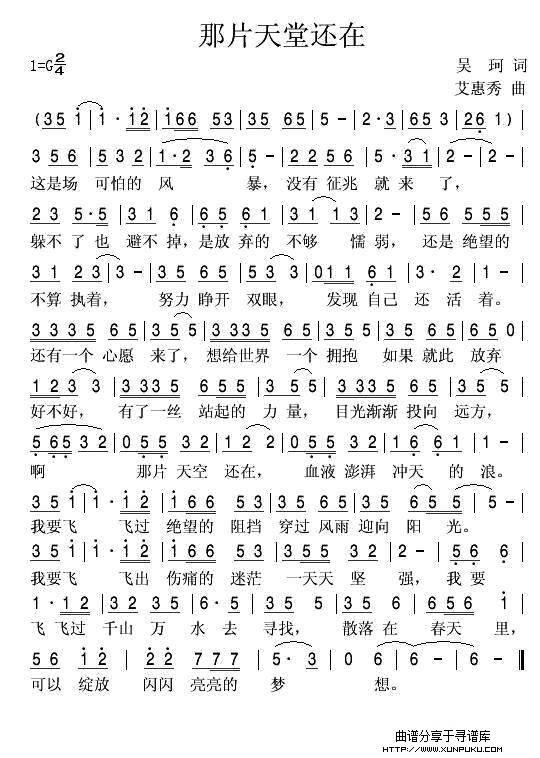 那片天堂还在
1=G 2/4
吴 珂 词
艾惠秀 曲
(3 5 1 | 1 · 1 2 | 1 6 6 5 3 | 3 5 6 5 | 5 - | 2 · 3 | 6 5 3 | 2 6 1 ) |
3 5 6 | 5 3 2 | 1 · 2 3 6 | 5 - | 2 2 5 6 | 5 · 3 1 | 2 - | 2 - |
这是场 可怕的 风 暴， 没有 征兆 就 来 了，
2 3 5 · 5 | 3 1 6 | 6 5 6 1 | 3 1 1 3 | 2 · | 5 6 5 5 5 |
躲不 了 也 避不 掉， 是放 弃的 不够 懦 弱， 还是 绝望的
3 1 2 3 | 3 - | 3 5 6 5 | 5 3 3 | 0 1 1 6 1 | 3 · 2 | 1 - |
不算 执着， 努力 睁开 双眼， 发现 自己 还 活 着。
3 3 3 5 6 5 | 3 5 5 | 3 3 3 5 6 5 | 3 5 6 | 6 5 6 5 | 6 5 0 |
还有一个 心愿 来了， 想给世界 一个 拥抱 如果 就此 放弃
1 2 3 | 3 3 3 5 6 5 | 3 5 5 | 3 3 3 5 6 5 | 3 5 6 |
好不好， 有了一丝 站起的 力 量， 目光渐渐 投向 远方，
5 6 5 3 2 | 0 5 5 3 2 | 1 2 2 | 0 5 5 3 2 | 1 6 6 1 | 1 - |
啊 那片 天空 还在， 血液 澎湃 冲天 的 浪。
3 5 1 | 1 · 1 2 | 1 6 6 5 5 | 3 5 3 5 | 6 5 5 | 5 - |
我要飞 飞过 绝望的 阻挡 穿过 风雨 迎向 阳 光。
3 5 1 | 1 · 1 2 | 1 6 6 5 6 | 3 3 2 1 2 | 2 - | 5 6 6 |
我要飞 飞出 伤痛的 迷茫 一天天 坚 强， 我 要
1 · 1 2 | 3 2 3 5 | 6 · 5 | 3 5 5 | 3 5 1 2 | 6 5 6 | 1 |
飞 飞过 千山 万 水 去 寻找， 散落 在 春天 里，
5 6 1 2 | 2 2 7 7 7 | 5 · 3 | 0 6 | 6 - | 6 - ‖
可以 绽放 闪闪 亮亮的 梦 想。
曲谱分享于寻谱库
HTTP://WWW.XUNPUKU.COM